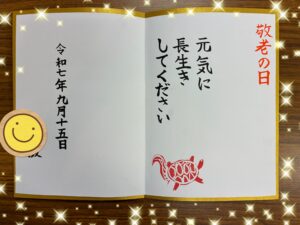 敬老の日
元気に
長生き
してください
令和七年九月十五日